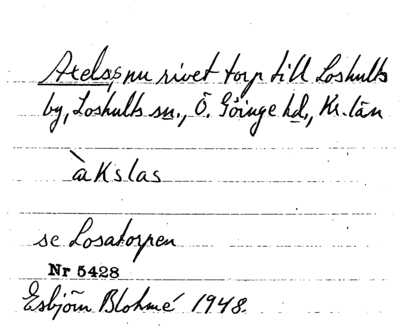 Axelas, nu rivet torp till Loshults
by, Loshults sn., Ö. Göinge hd., Kr. län
`akslas
se Losatorpen
Nr 5428
Esbjörn Blohmé 1948.